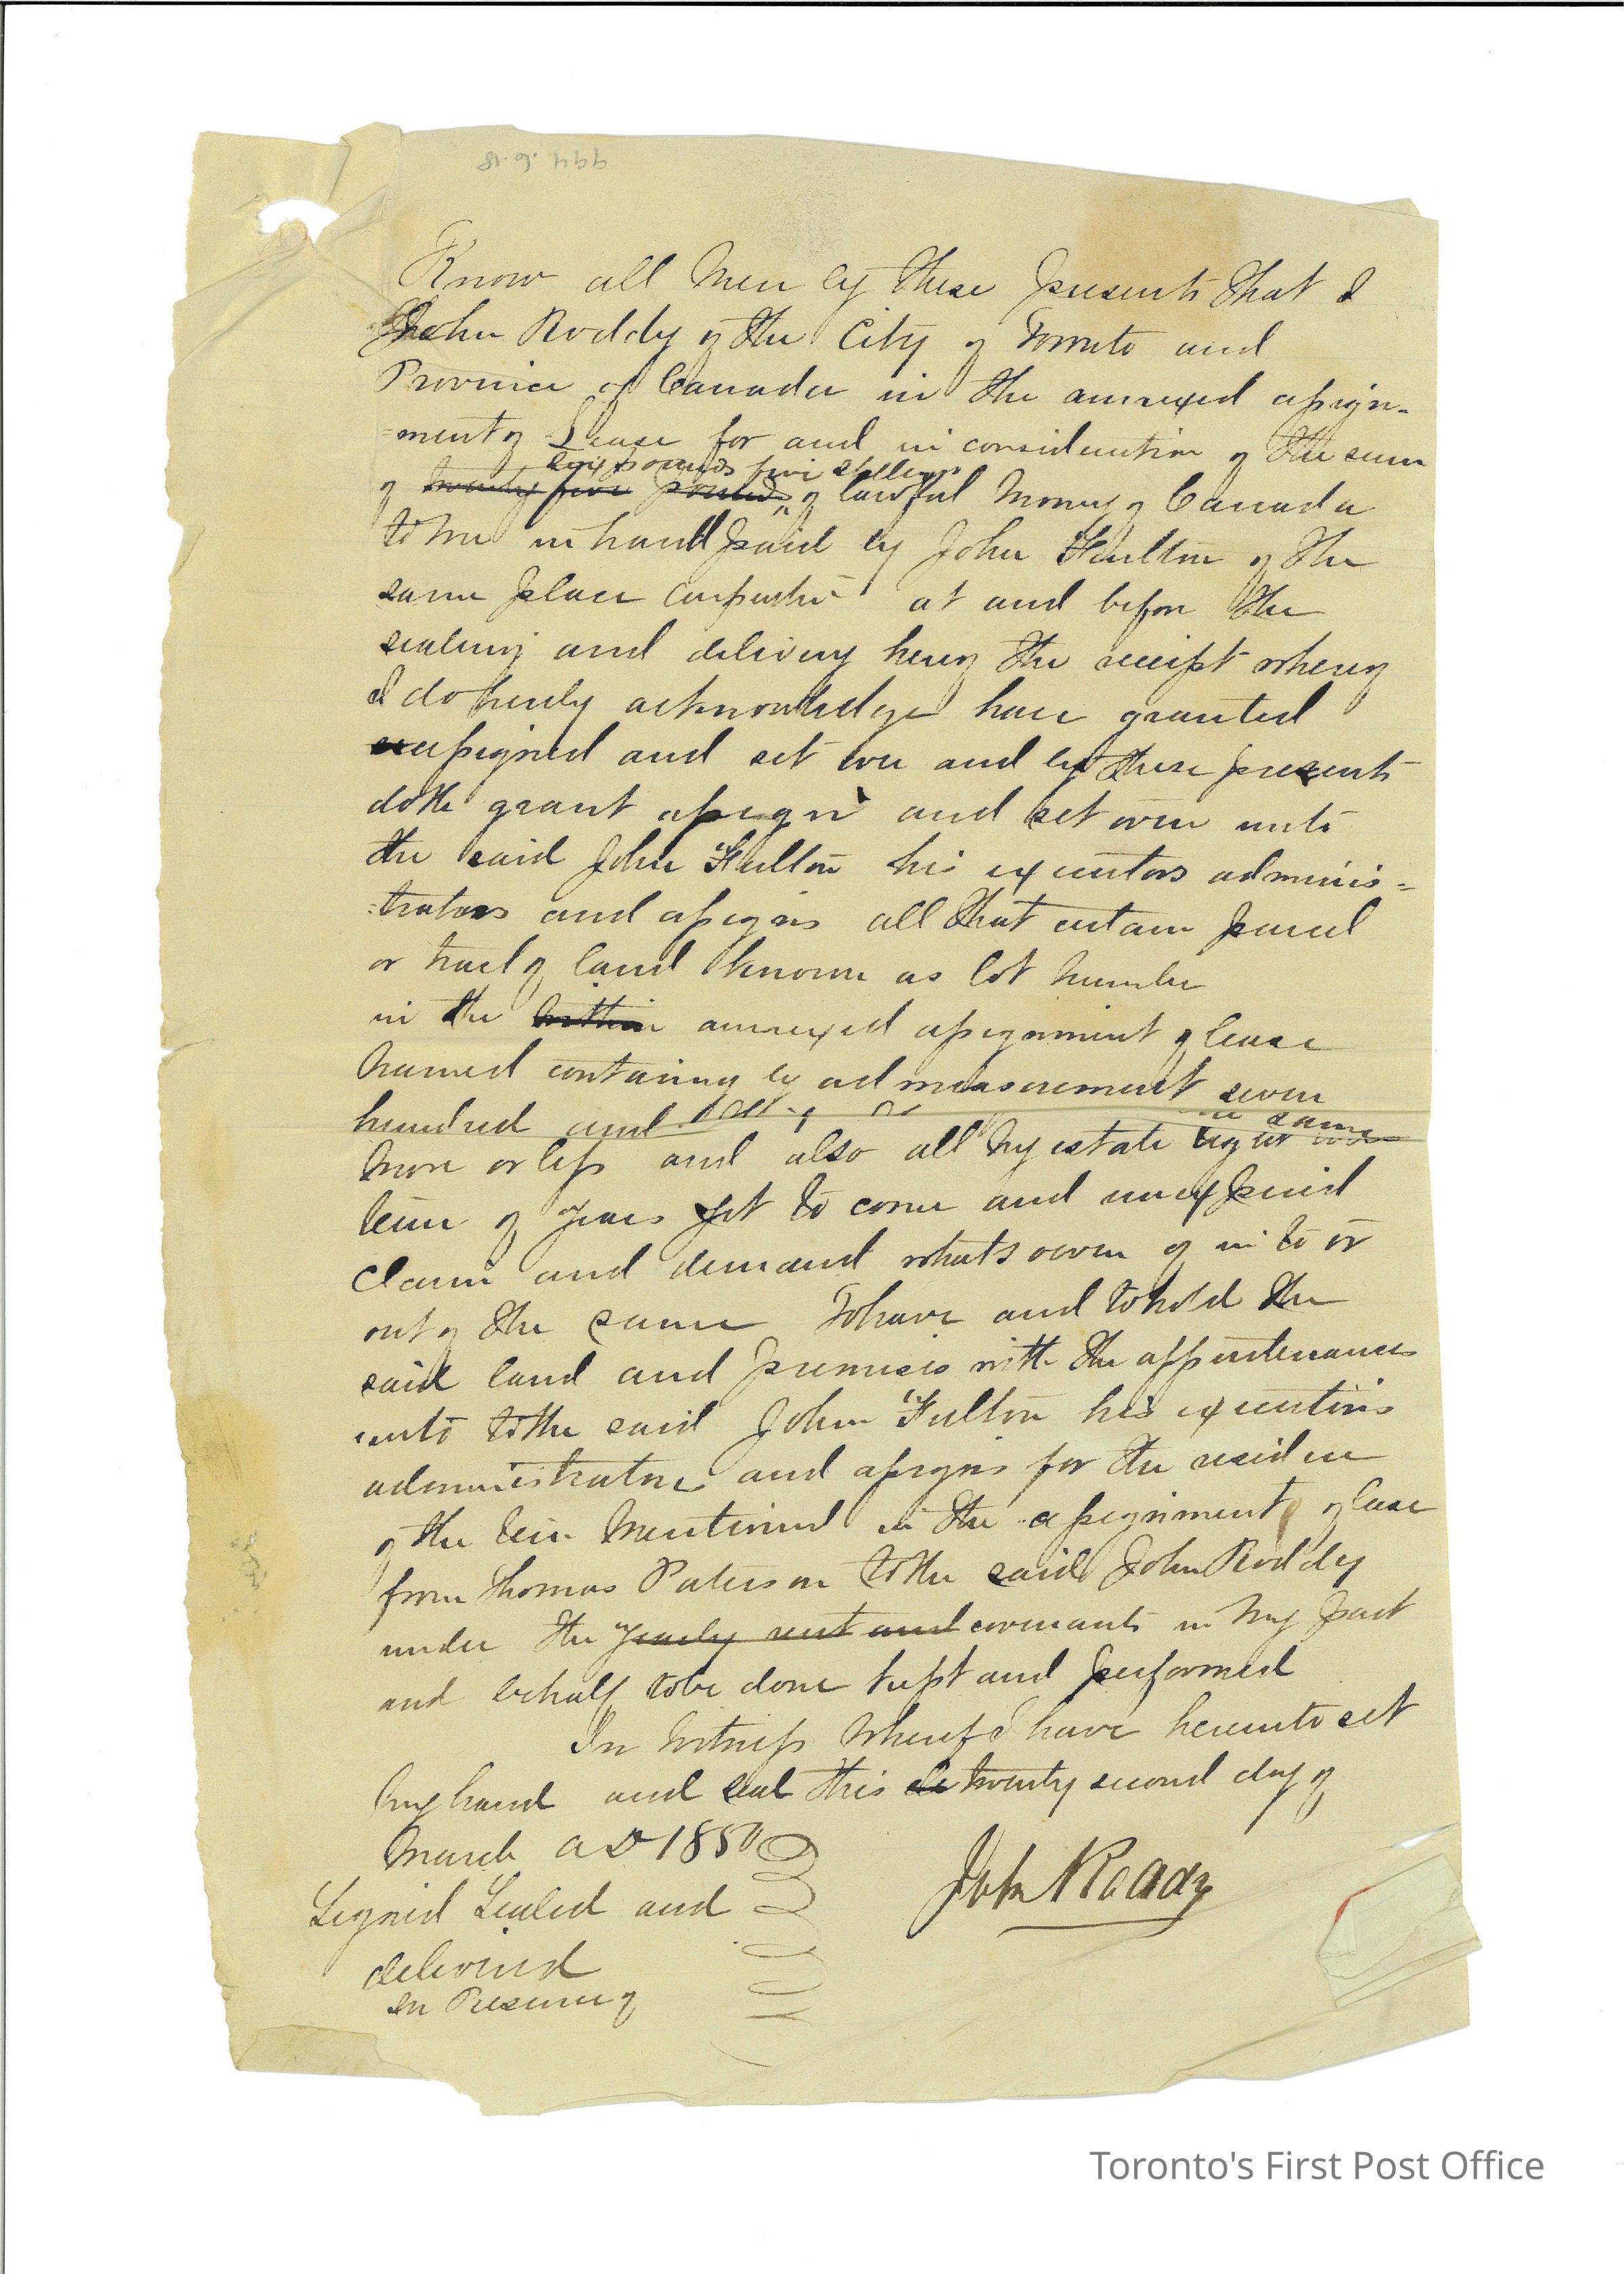 994.6.18
Know all Men by these presents that I
John Roddy of the City of Toronto and
Province of Canada in the annexed assign-
=ment of Lease for and in consideration of the sum
pounds five shillings
of twenty five pounds of lawful Money of Canada
to me in hand paid by John Fulton of the
same place carpenter at and before the
sealing and delivery hereof the receipt whereof
I do hereby acknowledge have granted
assigned and set over and by these presents
doth grant assign and set over unto
the said John Fulton his executors adminis=
=trators and assigns all that certain parcel
or tract of land known as lot number
in the within annexed assignment of lease
named containing by admeasurement seven
hundred and
same
more or less and also all my estate right
term of years yet to come and unexpired
claim and demand whatsoever of in to or
out of the same To have and to hold the
said land and premises with the appurtenances
unto to the said John Fulton his executors
administrators and assigns for the residue
of the term mentioned in the assignment of lease
from Thomas Paterson to the said John Roddy
under the yearly rent and covenants in my part
and behalf to be done kept and performed
In witness whereof I have hereunto set
my hand and seal this twenty second day of
March AD 1850
Signed Sealed and
delivered
in Presence of
John Roddy
Toronto's First Post Office